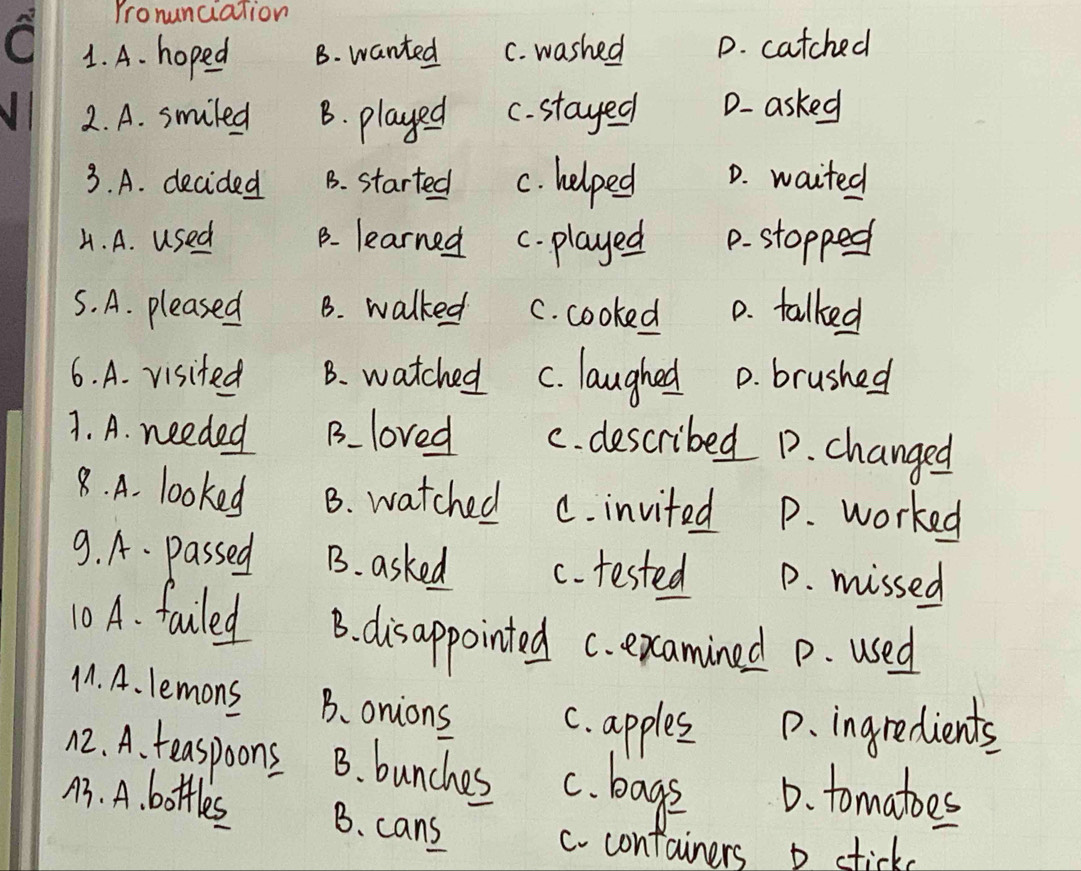 Pronunciation
1. A. hoped B. wanted C. washed D. catched
2. A. smiled B. played C. stayed D. asked
3. A. decided B. started C. helped D. waited
4. A. used B. learned C. played D. stopped
5. A. pleased B. walked C. cooked D. talked
6. A. visited B. watched C. laughed D. brushed
7. A. needed B. loved C. described D. changed
8. A. looked B. watched C. invited D. worked
9. A. passed B. asked C. tested D. missed
10 A. failed B. disappointed C. examined D. used
11. A. lemons B. onions C. apples D. ingredients
12. A. teaspoons B. bunches C. bags D. tomatoes
13. A. bottles B. cans C. containers D sticks